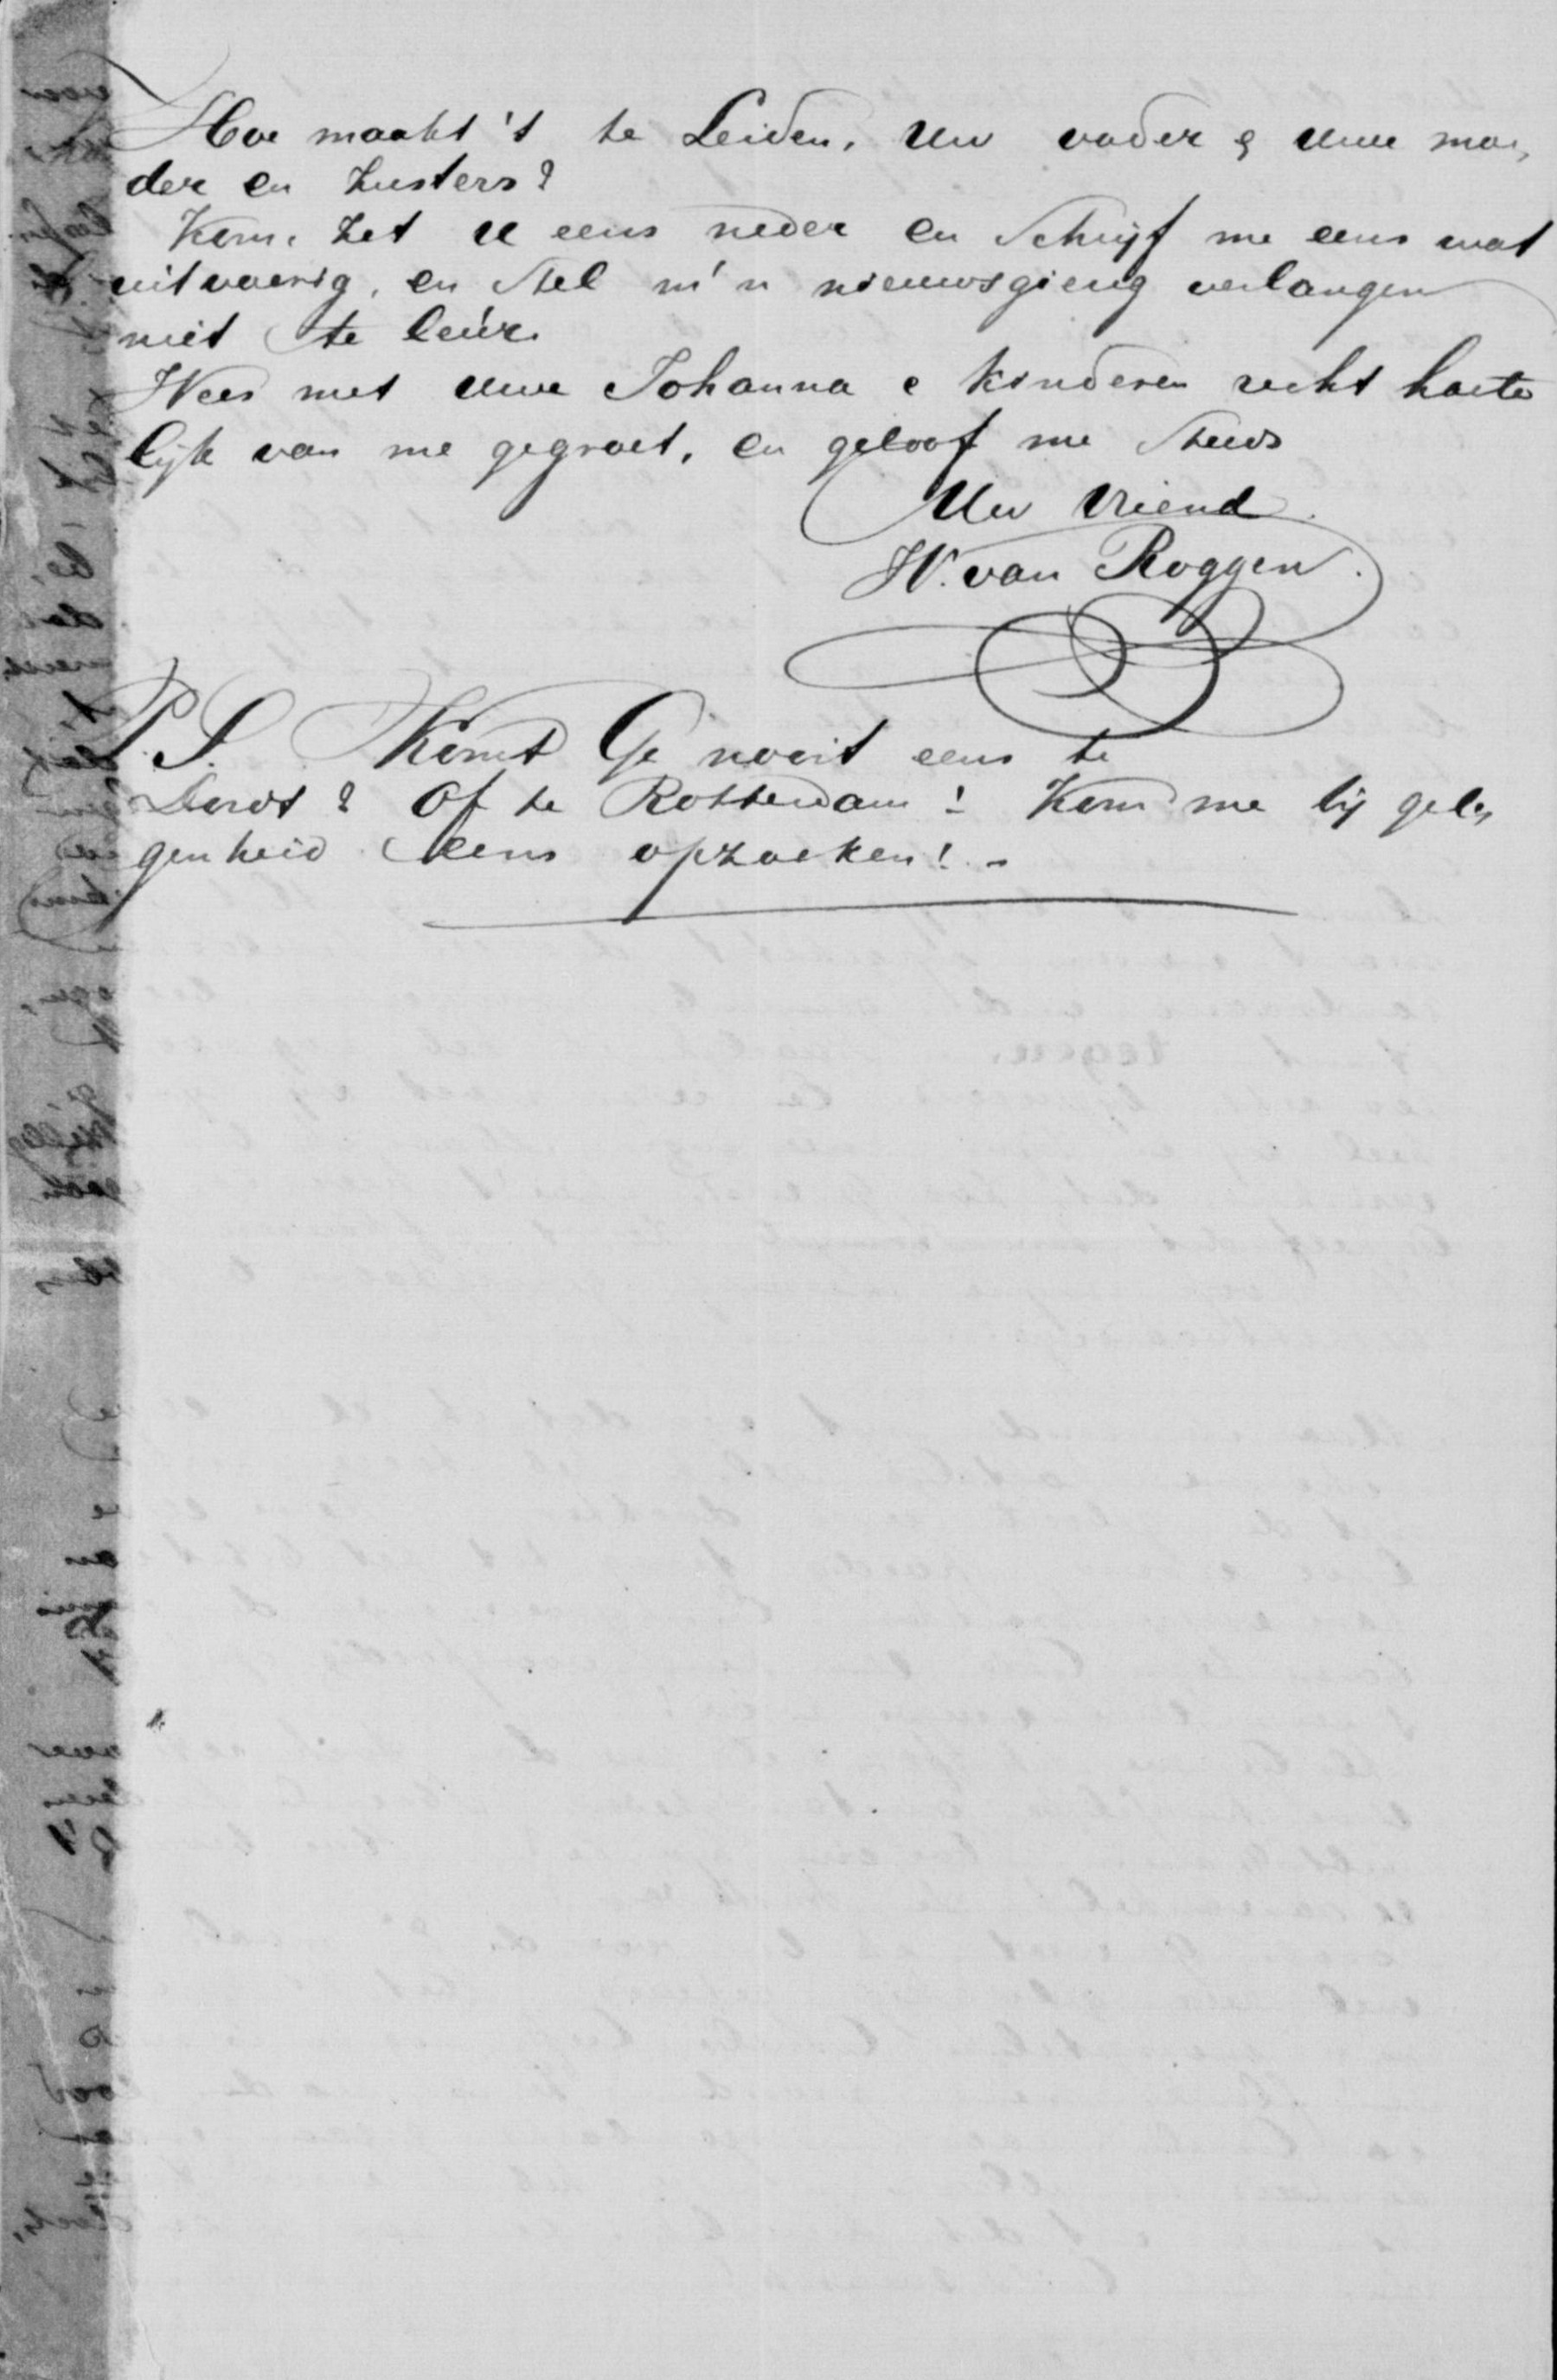 Hoe maakt 't te Leiden, Uw vader & Uwe moe,
der en Zusters?
Kom, Zet U eens neder en Schrijf me eens wat
uitvoerig, en Stel m'n nieuwsgierig verlangen
niet te leúr.
Wees met Uwe Johanna & Kinderen recht harte
lijk van me gegroet, en geloof me Steeds
Uw Vriend
W. van Roggen.
P.S. Komt Ge nooit eens te
Dordt? Of te Rotterdam! Kom me bij gele,
genheid eens opzoeken! -